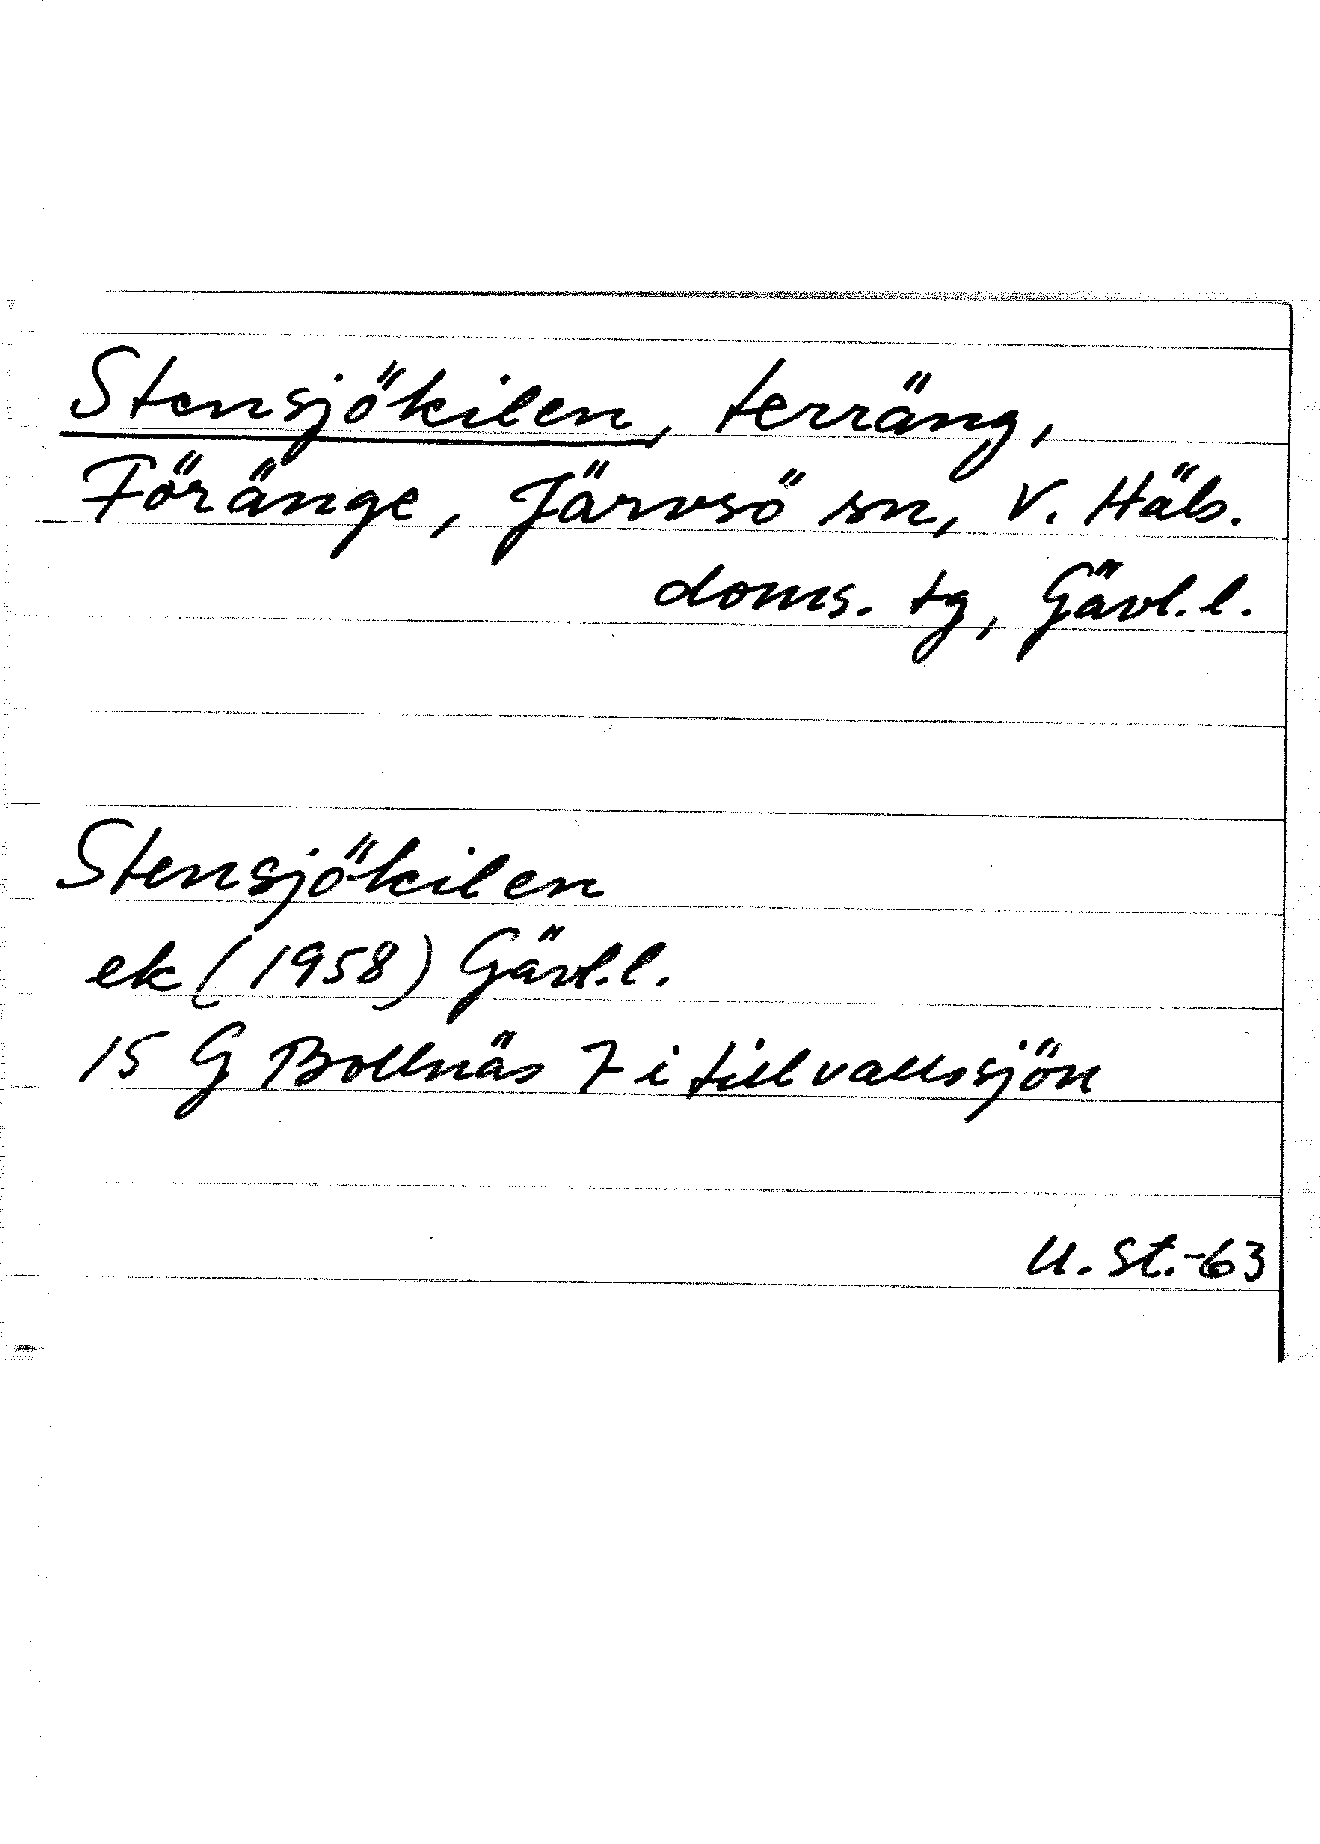 Stensjökilen, terräng,
Föränge, Järvsö sn, V. Häls.
doms. tg, Gävl. l.
Stensjökilen
ek (1958) Gävl. l.
15 G Bollnäs 7 i tillvallssjön
U. St.-63